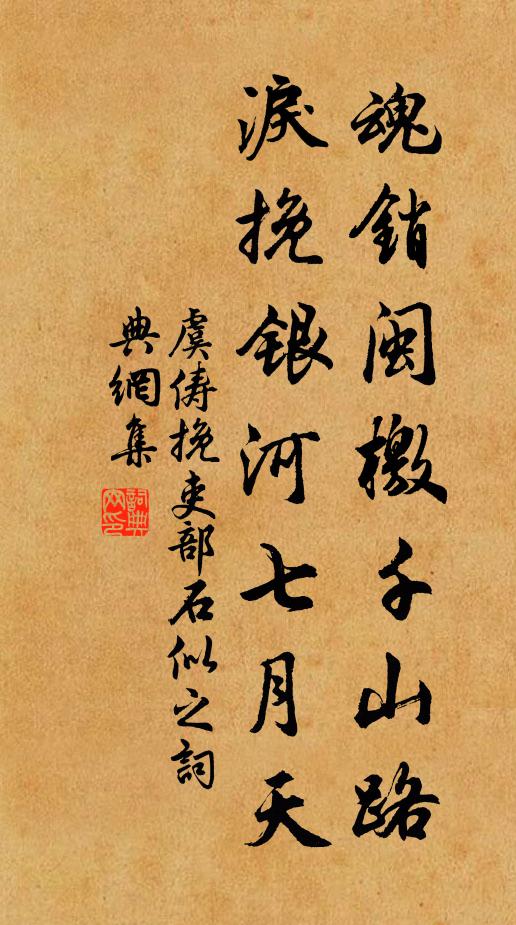 魂銷閩檄千山路
淚挽銀河七月天
虞儔挽吏部石似之詞
典網集
詞典網印